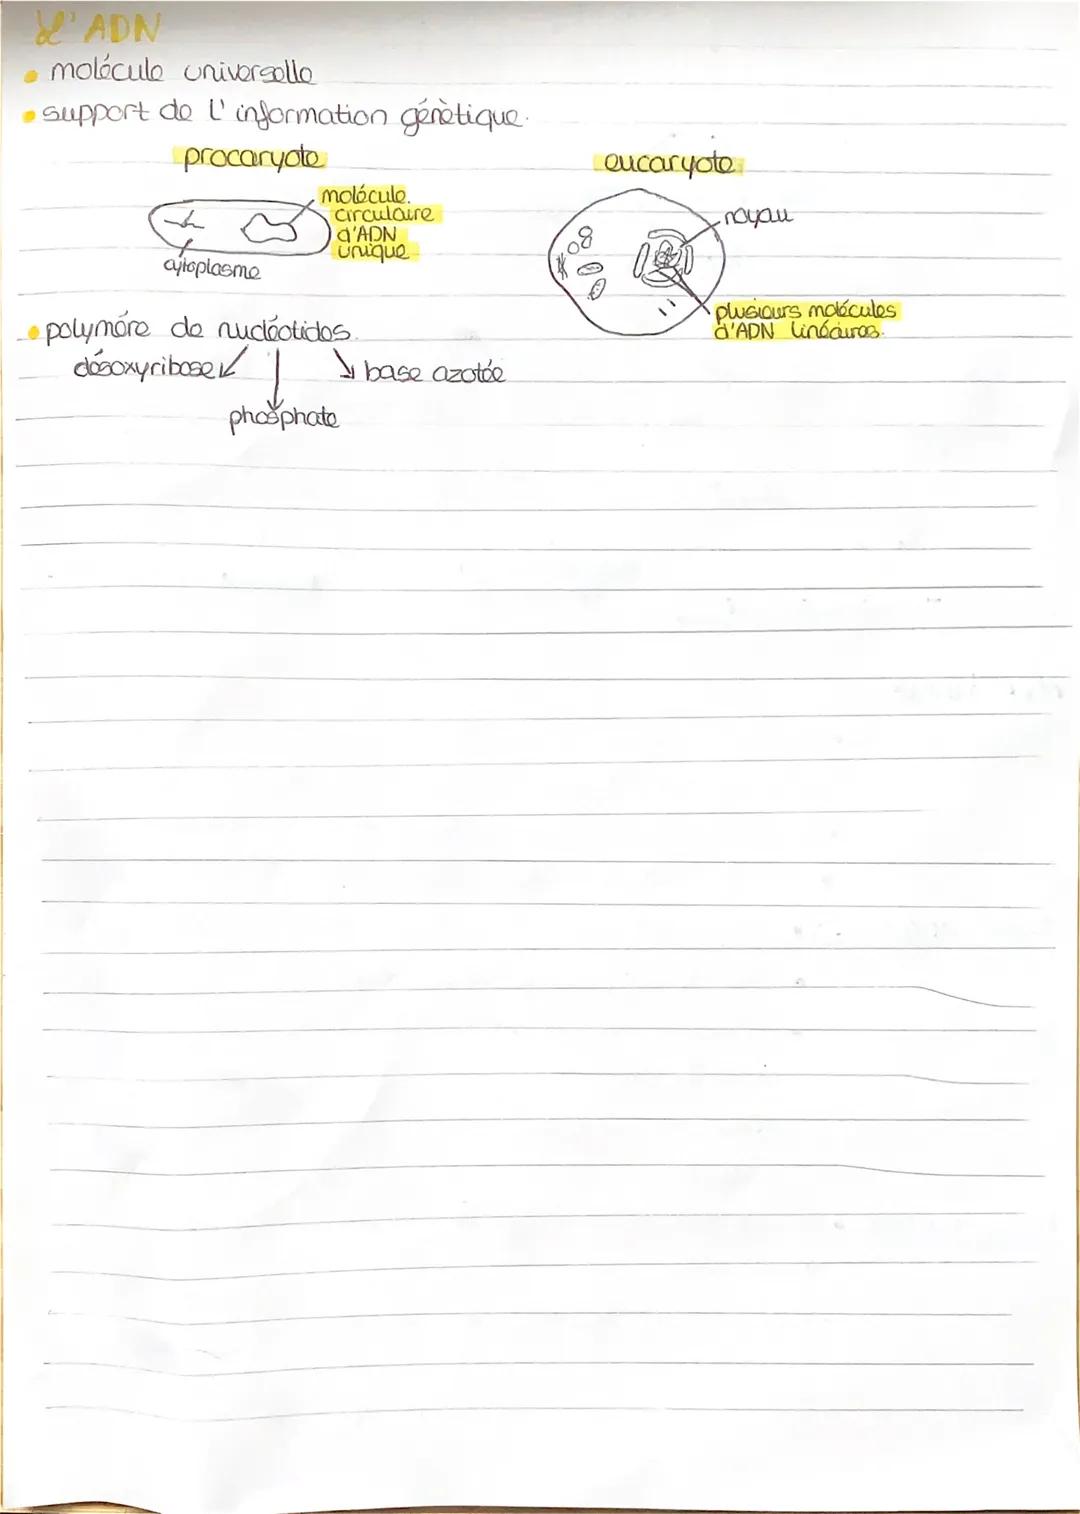 L'ADN
• molécule universelle
• support de l'information génètique.
procaryote
eucaryote
molécule
circulaire
d'ADN
unique
cytoplasme
noyau
plusieurs molécules
d'ADN linéaires.
• polymère de nucléotides.
désoxyribose
base azotée
phosphate